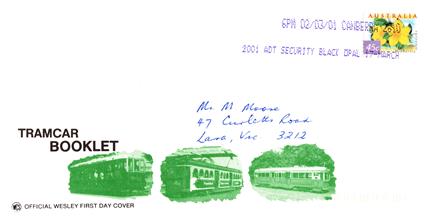 6PM 02/03/01 CANBERRA 2610
2001 ADT SECURITY BLACK OPAL 17 MARCH
AUSTRALIA
45c
Mr M Moose
47
Road
Lara, Vic 3212
TRAMCAR
BOOKLET
OFFICIAL WESLEY FIRST DAY COVER